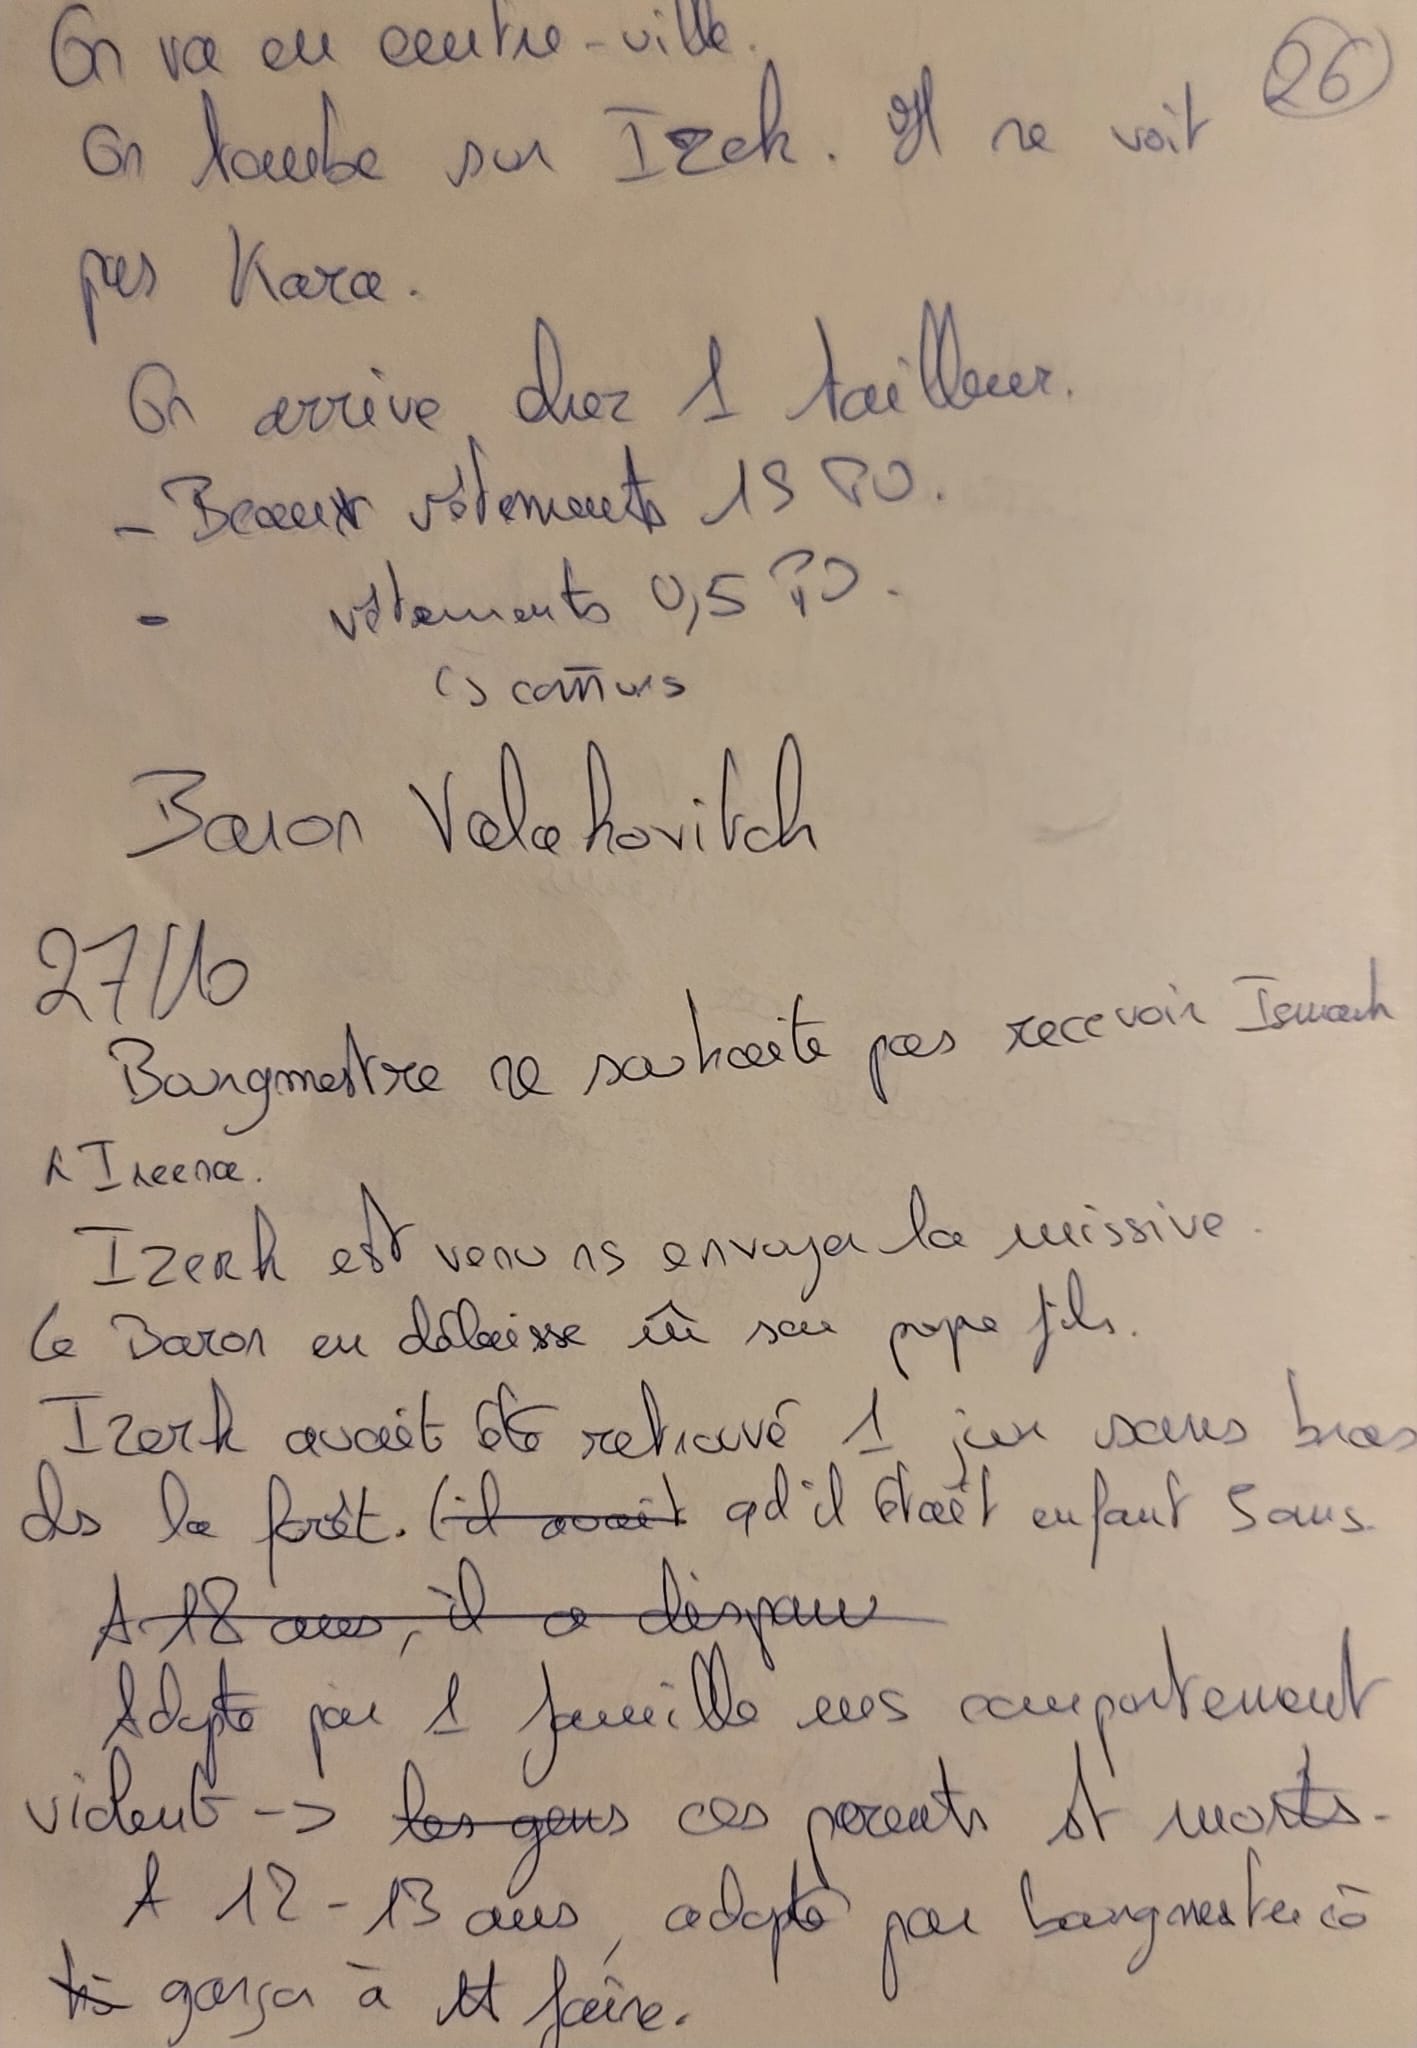 26
On va en centre-ville.
On tombe sur Izek. Il ne voit
pas Kara.
On arrive chez 1 tailleur.
- Beaux vêtements 15 PO.
- vêtements 0,5 PO.
↳ com̄uns
Baron Valakovitch
27/10
Bourgmestre ne souhaite pas recevoir Ismark
& Ireena.
Izerk est venu ns envoyer la missive.
Le Baron en délaisse m̂ son propre fils.
Izerk avait été retrouvé 1 jour sans bras
ds la forêt. (il avait qd il était enfant 5 ans.
A 18 ans, il a disparu
Adopté par 1 famille mais comportement
violent -> les gens ces parents st morts.
A 12-13 ans, adopté par bourgmestre cō
garçon à tt faire.